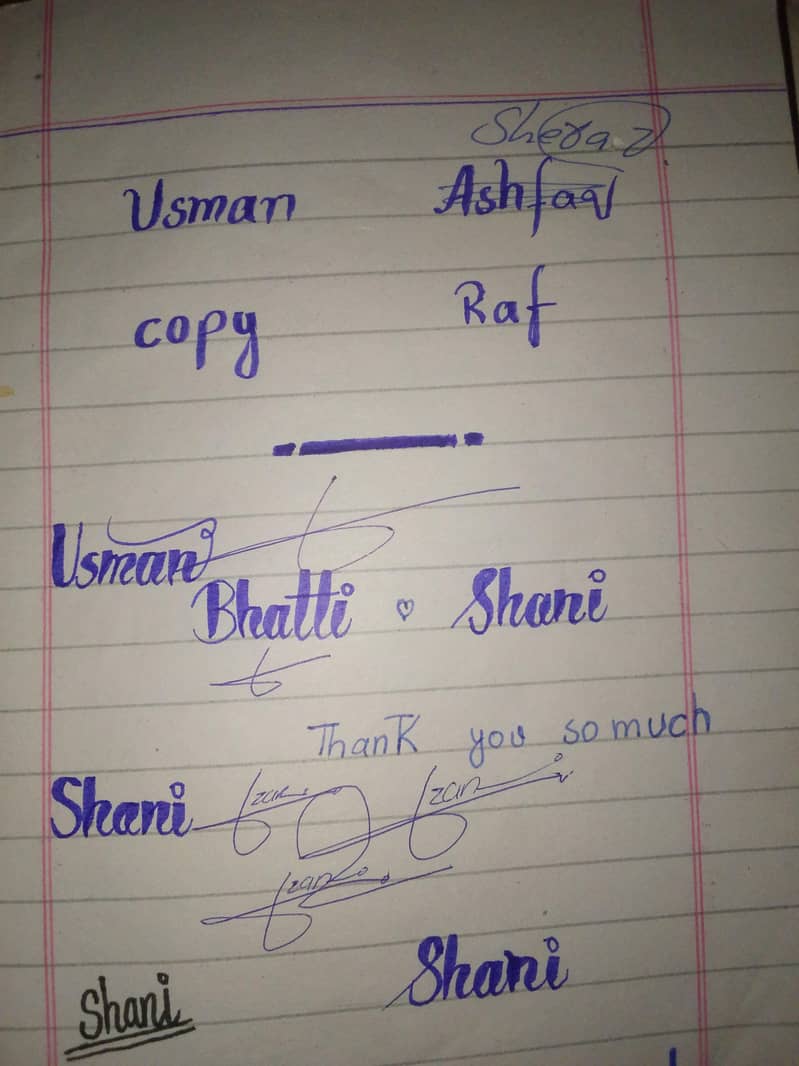 Sheraz
Usman Ashfaq
copy Raf
Usman
Bhatti ♡ Shani
Thank you so much
Shani
Shani
Shani